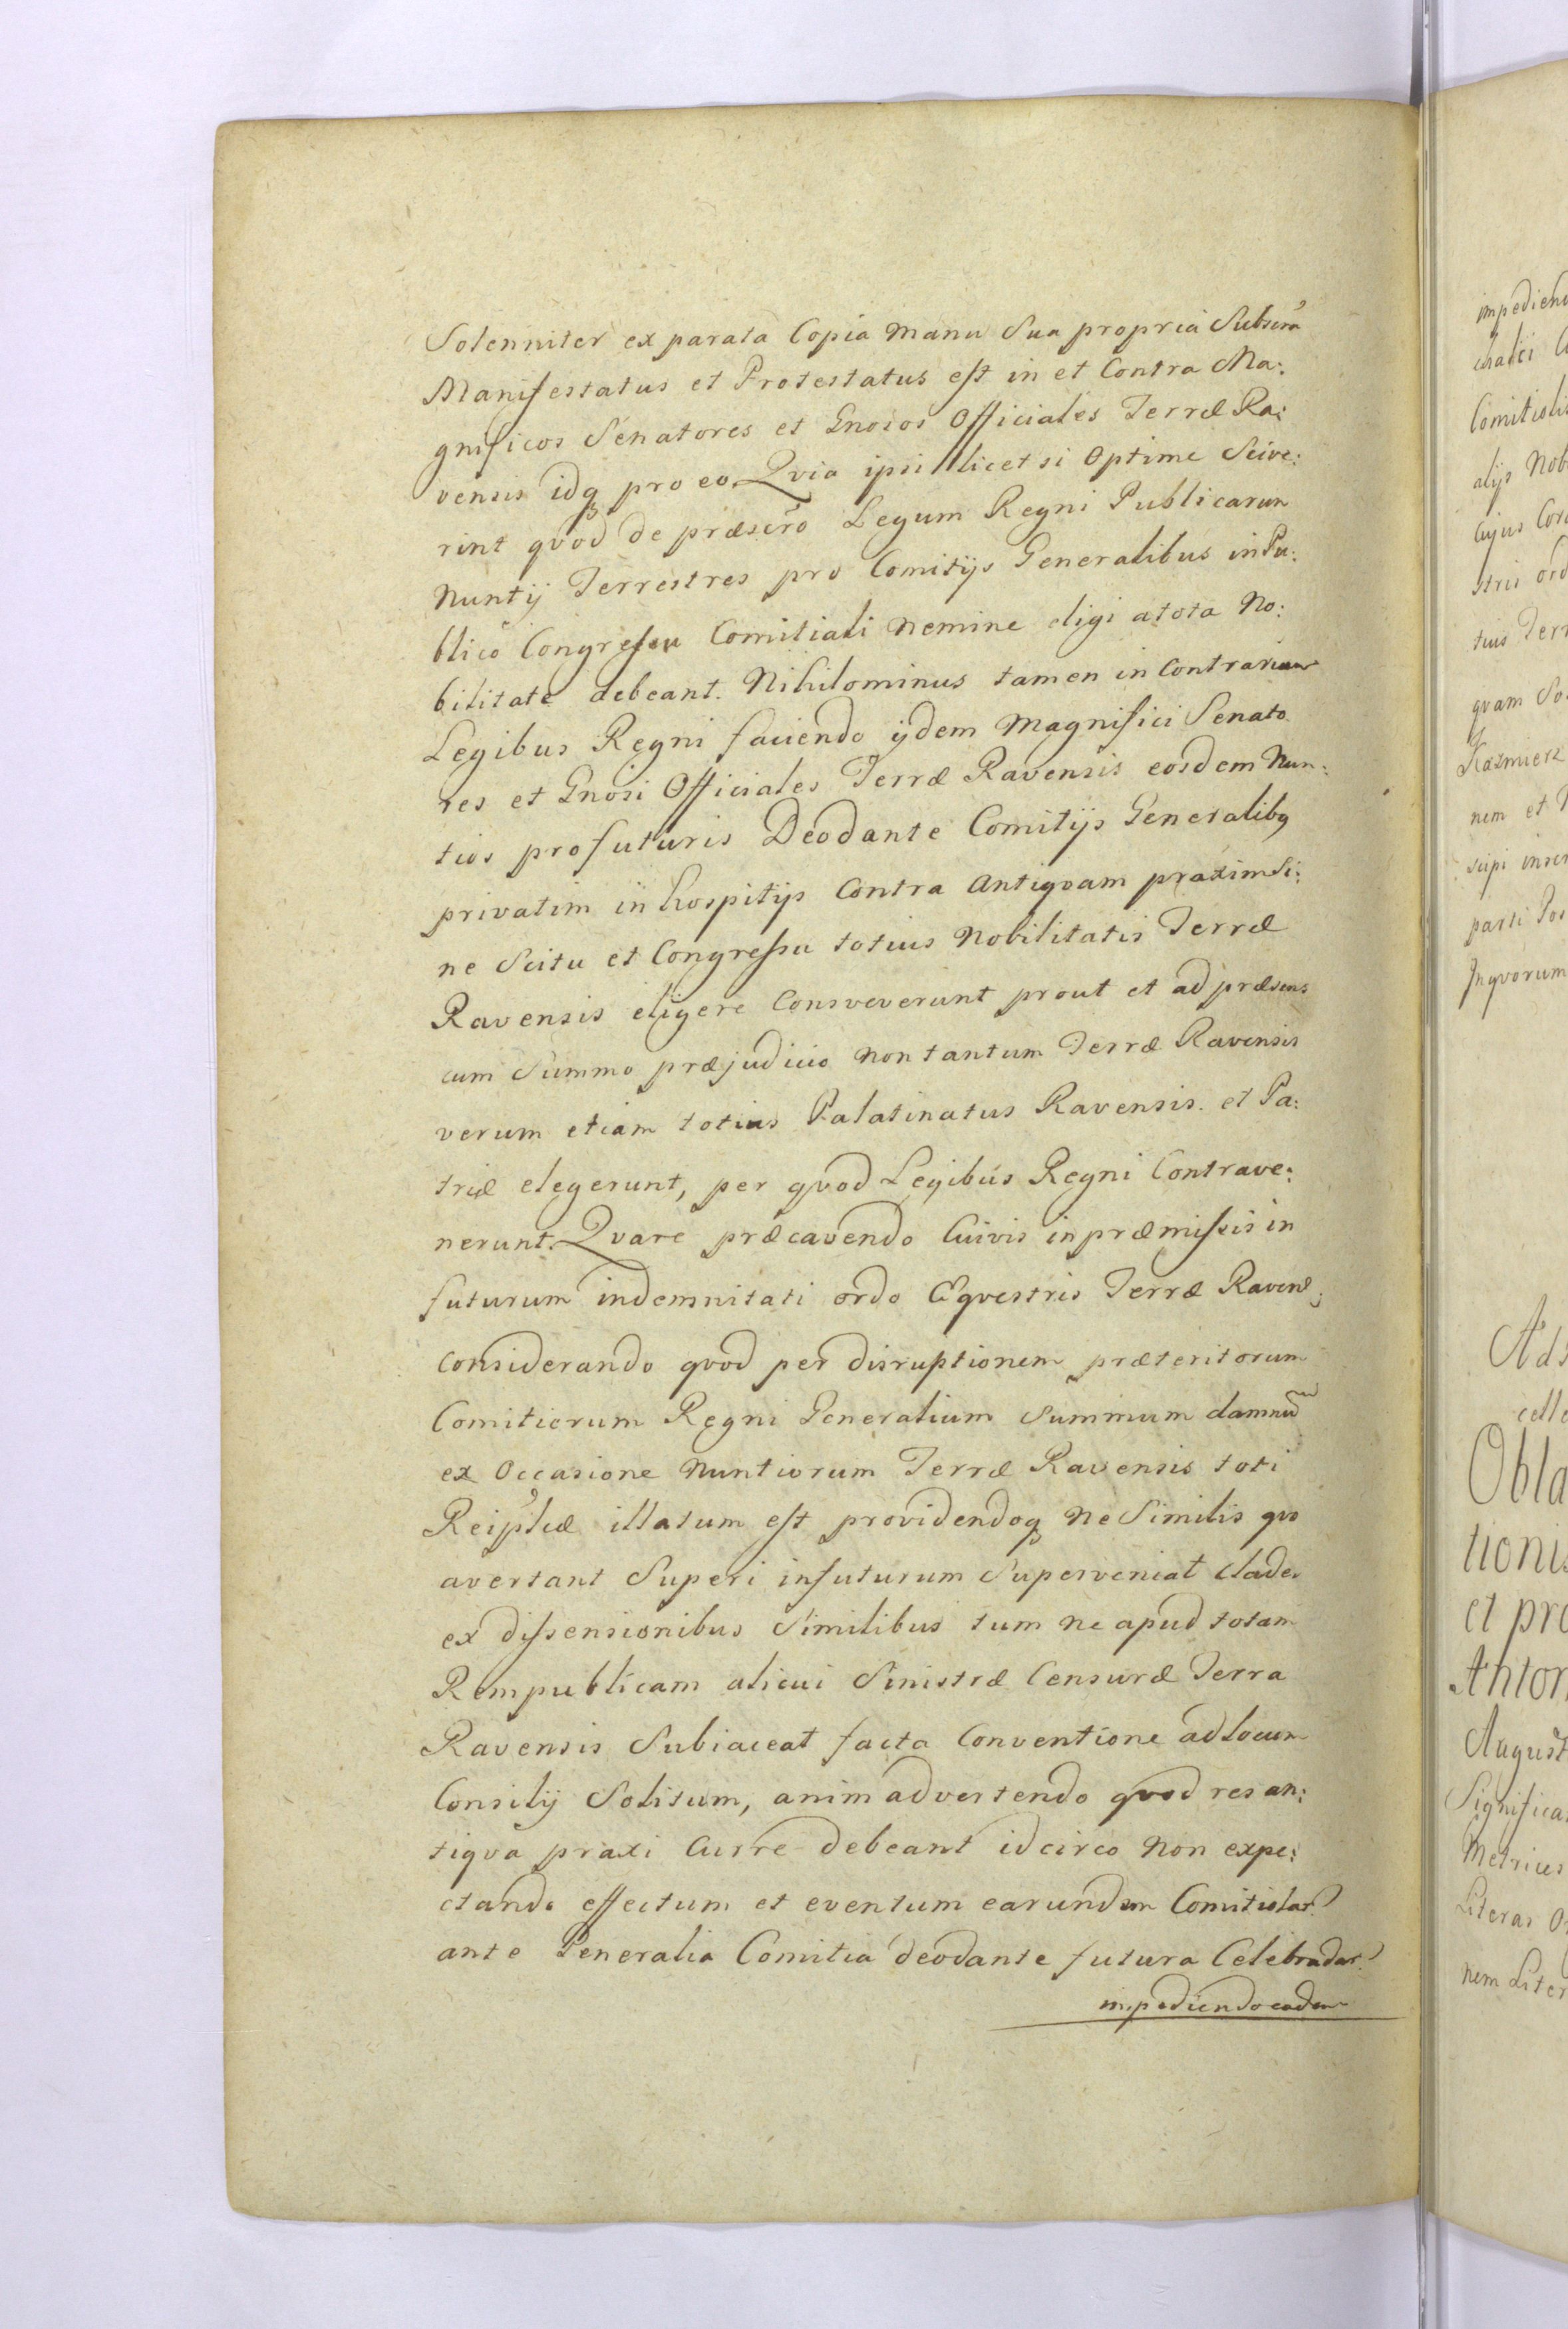 Solenniter ex parata Copia manu Sua propria Subscra
Manifestatus et Protestatus est in et Contra Ma:
gnificos Senatores et Gnosos Officiales Terræ Ra:
vensis idq pro eo. Qvia ipsi licet si Optime Scive:
rint qvod de præscro Legum Regni Publicarum
Nuntij Terrestres pro Comitijs Generalibus in Pu:
blico Congressu Comitiali Nemine eligi a tota No:
bilitate debeant. Nihilominus tamen in Contrarium
Legibus Regni faciendo ijdem Magnifici Senato
res et Gnosi Officiales Terræ Ravensis eosdem Nun:
tios pro futuris Deo dante Comitijs Generalibq
privatim in hospitijs Contra Antiqvam praxim Si:
ne Scitu et Congressu totius Nobilitatis Terræ
Ravensis eligere Consveverunt prout et ad præsens
cum Summo præjudicio non tantum Terræ Ravensis
verum etiam totius Palatinatus Ravensis. et Pa:
triæ elegerunt, per qvod Legibus Regni Contrave:
nerunt. Qvare præcavendo Cuivis in præmissis in
futurum indemnitati ordo Eqvestris Terræ Ravens
considerando qvod per disruptionem præteritorum
Comitiorum Regni Generalium Summum damnu
ex Occasione Nuntiorum Terræ Ravensis toti
Reiplicæ illatum est providendoq Ne Similis qvo
avertant Superi in futurum Superveniat clades
ex dissensionibus Similibus tum ne apud totam
Rempublicam alicui Sinistræ Censuræ Terra
Ravensis Subiaceat facta Conventione ad locum
Consilij Solitum, animadvertendo qvod res an:
tiqva praxi Curre debeant idcirco Non expe:
ctando effectum et eventum earundem Comitiolar
ante Generalia Comitia deo dante futura Celebradar
impediendo eadem
impediend
Comitioli
alijs Nob
cujus Cor
stris ord
tius Terr
qvam So
Kazmierz
nem et
parti Pos
Inqvorum
Ads
celle
Obla
tionis
et pro
Anton
August
Significa
Metrices
Literas O
nem Liter